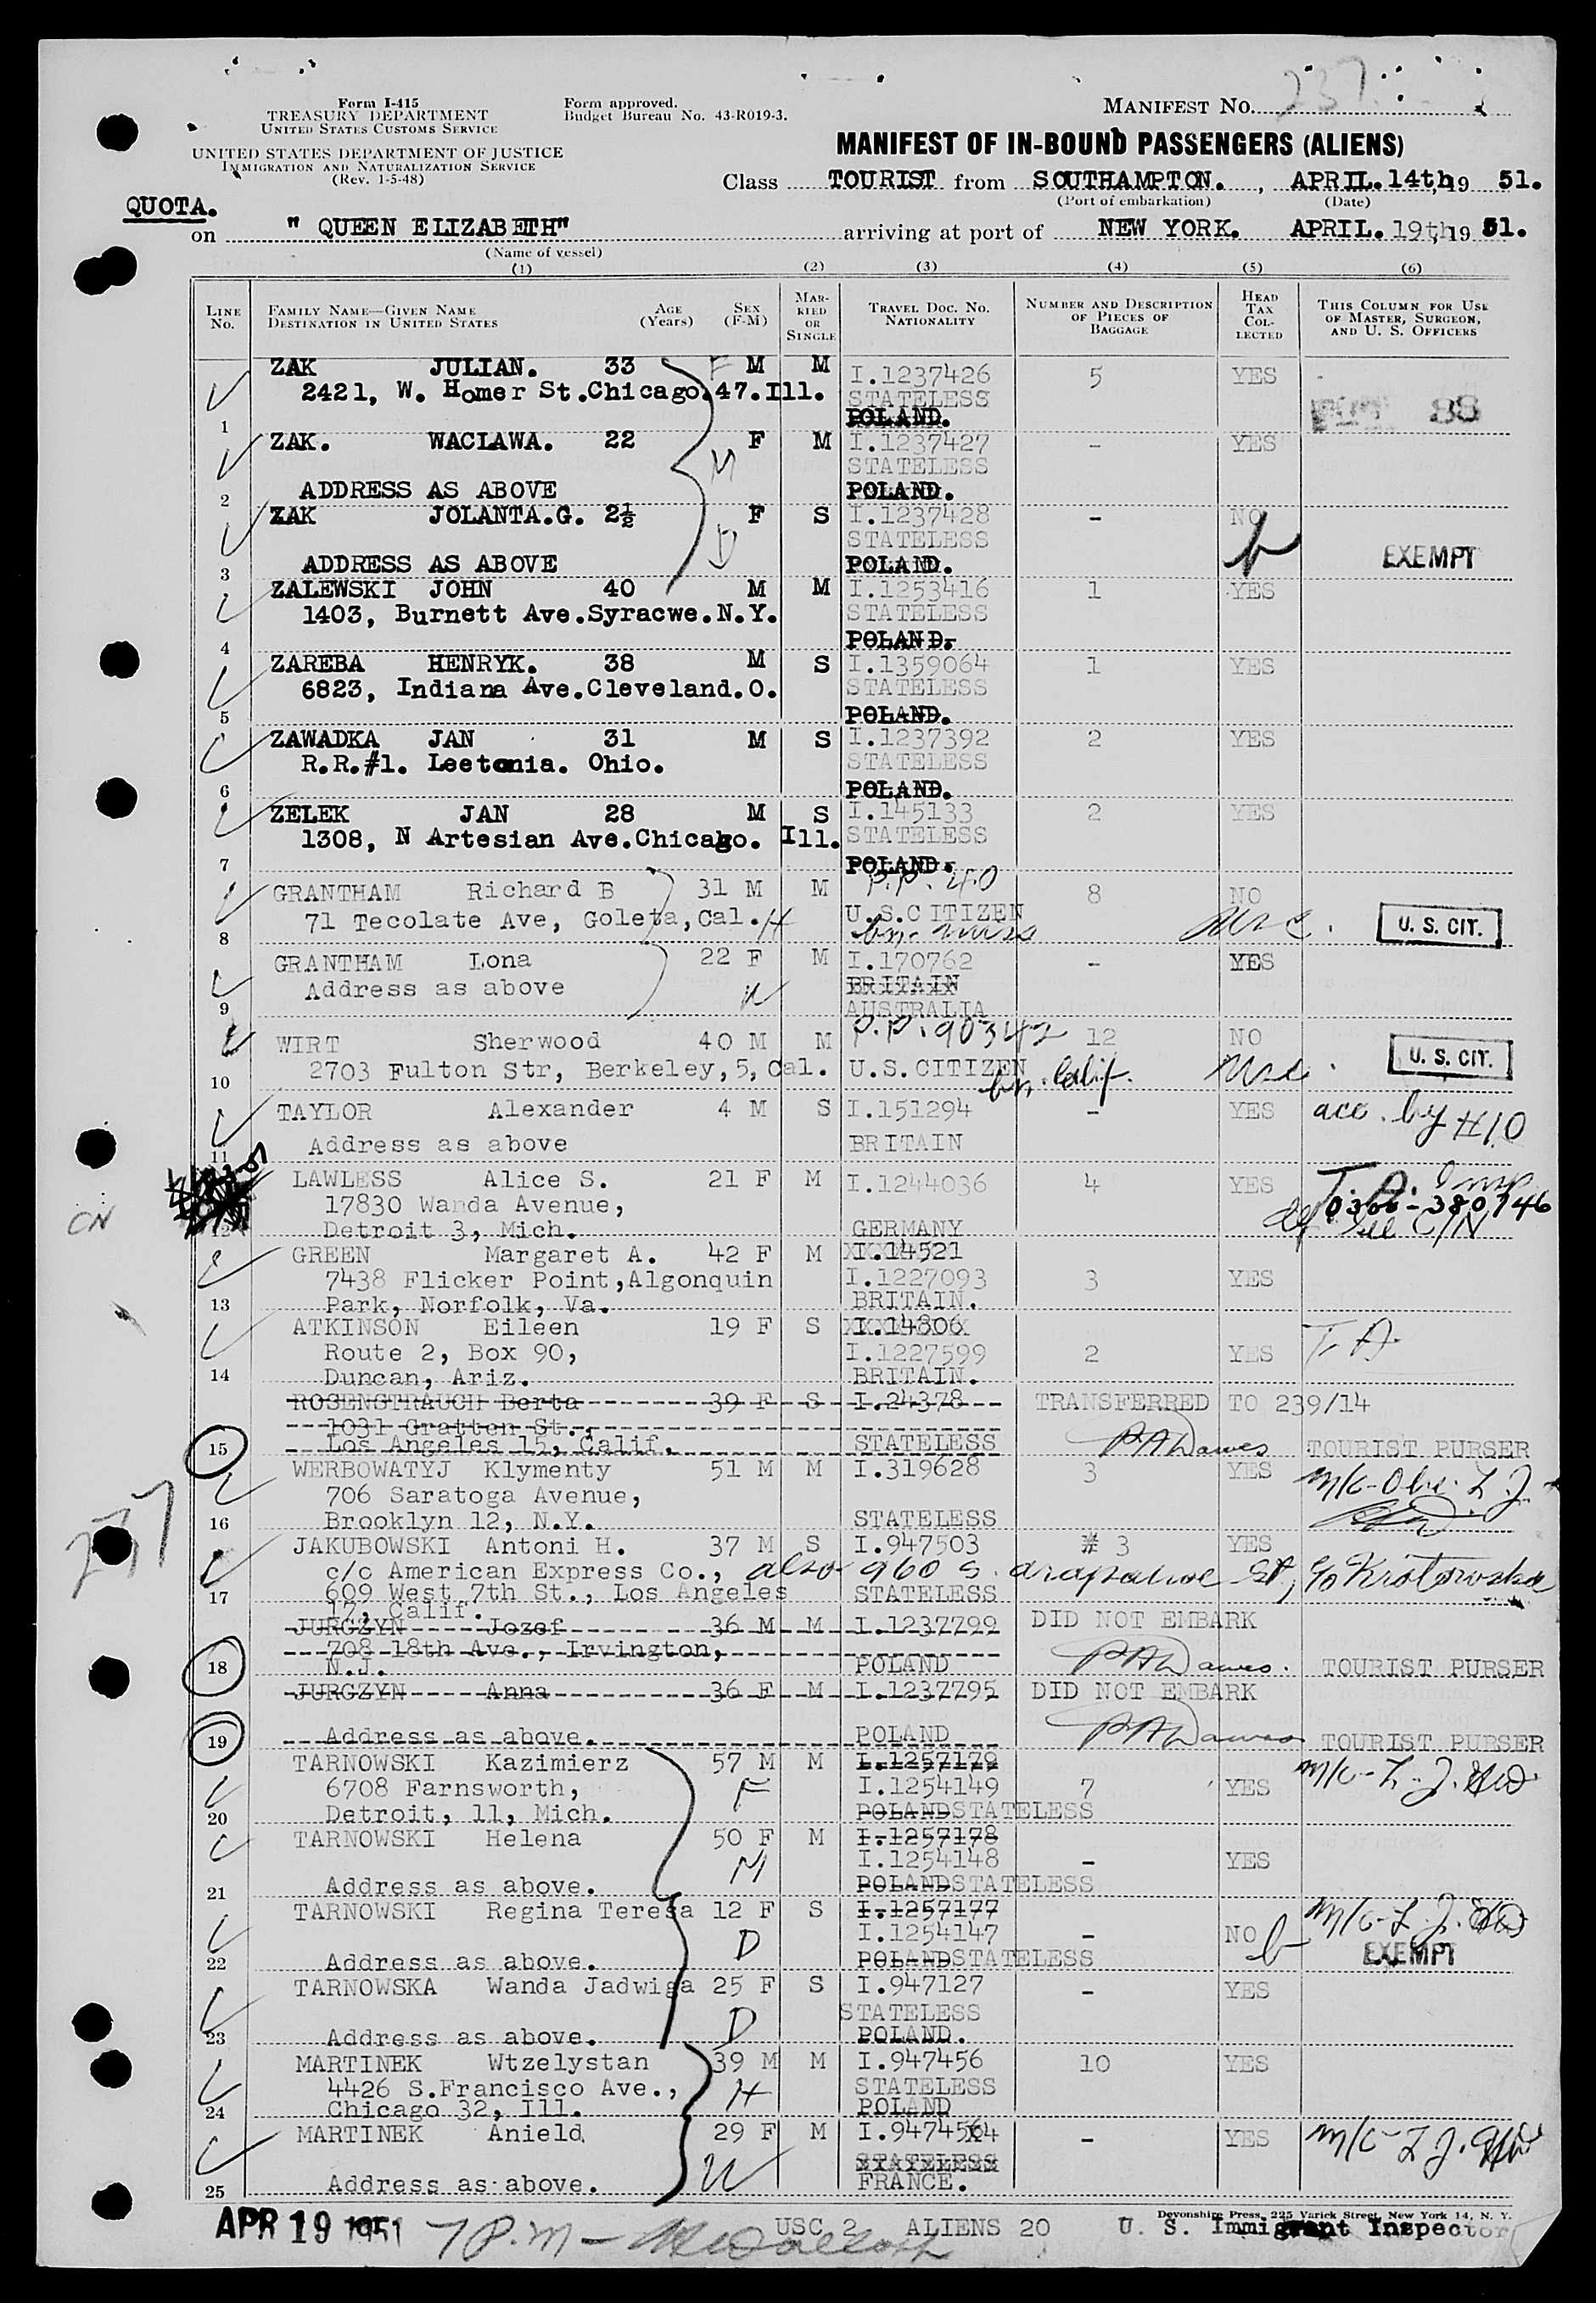 Form I-415
TREASURY DEPARTMENT
UNITED STATES CUSTOMS SERVICE
UNITED STATES DEPARTMENT OF JUSTICE
IMMIGRATION AND NATURALIZATION SERVICE
(Rev. 1-5-48)
Form approved.
Budget Bureau No. 43-R019-3.
MANIFEST NO. 237
MANIFEST OF IN-BOUND PASSENGERS (ALIENS)
Class TOURIST from SOUTHAMPTON. , APRIL. 14th, 19 51.
(Port of embarkation) (Date)
QUOTA.
on " QUEEN ELIZABETH" arriving at port of NEW YORK. APRIL. 19th, 19 51.
(Name of vessel)
(1) (2) (3) (4) (5) (6)
LINE No. FAMILY NAME—GIVEN NAME DESTINATION IN UNITED STATES AGE (Years) SEX (F-M) MARRIED OR SINGLE TRAVEL DOC. NO. NATIONALITY NUMBER AND DESCRIPTION OF PIECES OF BAGGAGE HEAD TAX COLLECTED THIS COLUMN FOR USE OF MASTER, SURGEON, AND U. S. OFFICERS
ZAK JULIAN. 33 F M M I.1237426 5 YES
2421, W. Homer St.Chicago.47.Ill. STATELESS
1 POLAND. 88
ZAK. WACLAWA. 22 F M I.1237427 - YES
M STATELESS
2 ADDRESS AS ABOVE POLAND.
ZAK JOLANTA.G. 2½ F S I.1237428 - NO
D STATELESS
3 ADDRESS AS ABOVE POLAND. EXEMPT
ZALEWSKI JOHN 40 M M I.1253416 1 YES
1403, Burnett Ave.Syracwe.N.Y. STATELESS
4 POLAND.
ZAREBA HENRYK. 38 M S I.1359064 1 YES
6823, Indiana Ave.Cleveland.O. STATELESS
5 POLAND.
ZAWADKA JAN 31 M S I.1237392 2 YES
R.R.#1. Leetonia. Ohio. STATELESS
6 POLAND.
ZELEK JAN 28 M S I.145133 2 YES
1308, N Artesian Ave.Chicago. Ill. STATELESS
7 POLAND.
GRANTHAM Richard B 31 M M P.P. 40 8 NO
71 Tecolate Ave, Goleta,Cal. H U.S.CITIZEN U. S. CIT.
8
GRANTHAM Iona 22 F M I.170762 - YES
Address as above W BRITAIN
9 AUSTRALIA
WIRT Sherwood 40 M M P.P. 90342 12 NO
2703 Fulton Str, Berkeley,5,Cal. U.S.CITIZEN U. S. CIT.
10 bn. Calif.
TAYLOR Alexander 4 M S I.151294 - YES acc. by #10
Address as above BRITAIN
11
LAWLESS Alice S. 21 F M I.1244036 4 YES
17830 Wanda Avenue, 0300-380746
CN 12 Detroit 3, Mich. GERMANY
GREEN Margaret A. 42 F M I.14521
7438 Flicker Point,Algonquin I.1227093 3 YES
13 Park, Norfolk, Va. BRITAIN.
ATKINSON Eileen 19 F S I.14806
Route 2, Box 90, I.1227599 2 YES T. A.
14 Duncan, Ariz. BRITAIN.
ROSENSTRAUCH Berta 39 F S I.24378 TRANSFERRED TO 239/14
1031 Gratton St.,
15 Los Angeles 15, Calif. STATELESS PADawes TOURIST PURSER
WERBOWATYJ Klymenty 51 M M I.319628 3 YES
706 Saratoga Avenue,
16 Brooklyn 12, N.Y. STATELESS
237
JAKUBOWSKI Antoni H. 37 M S I.947503 # 3 YES
c/c American Express Co., also 960 S.
17 609 West 7th St., Los Angeles STATELESS
17, Calif.
JURGZYN Jozef 36 M M I.1237799 DID NOT EMBARK
708 18th Ave., Irvington,
18 N.J. POLAND PADawes. TOURIST PURSER
JURGZYN Anna 36 F M I.1237795 DID NOT EMBARK
19 Address as above. POLAND PADawes TOURIST PURSER
TARNOWSKI Kazimierz 57 M M I.1257179
6708 Farnsworth, F I.1254149 7 YES
20 Detroit, 11, Mich. POLAND STATELESS
TARNOWSKI Helena 50 F M I.1257178
M I.1254148 - YES
21 Address as above. POLAND STATELESS
TARNOWSKI Regina Teresa 12 F S I.1257177
D I.1254147 - NO
22 Address as above. POLAND STATELESS EXEMPT
TARNOWSKA Wanda Jadwiga 25 F S I.947127 - YES
D STATELESS
23 Address as above. POLAND.
MARTINEK Wtzelystan 39 M M I.947456 10 YES
4426 S.Francisco Ave., H STATELESS
24 Chicago 32, Ill. POLAND
MARTINEK Anield 29 F M I.947454 - YES
W STATELESS
25 Address as above. FRANCE.
Devonshire Press, 225 Varick Street, New York 14, N. Y.
APR 19 1951 7 P.M - USC 2 ALIENS 20 U. S. Immigrant Inspector